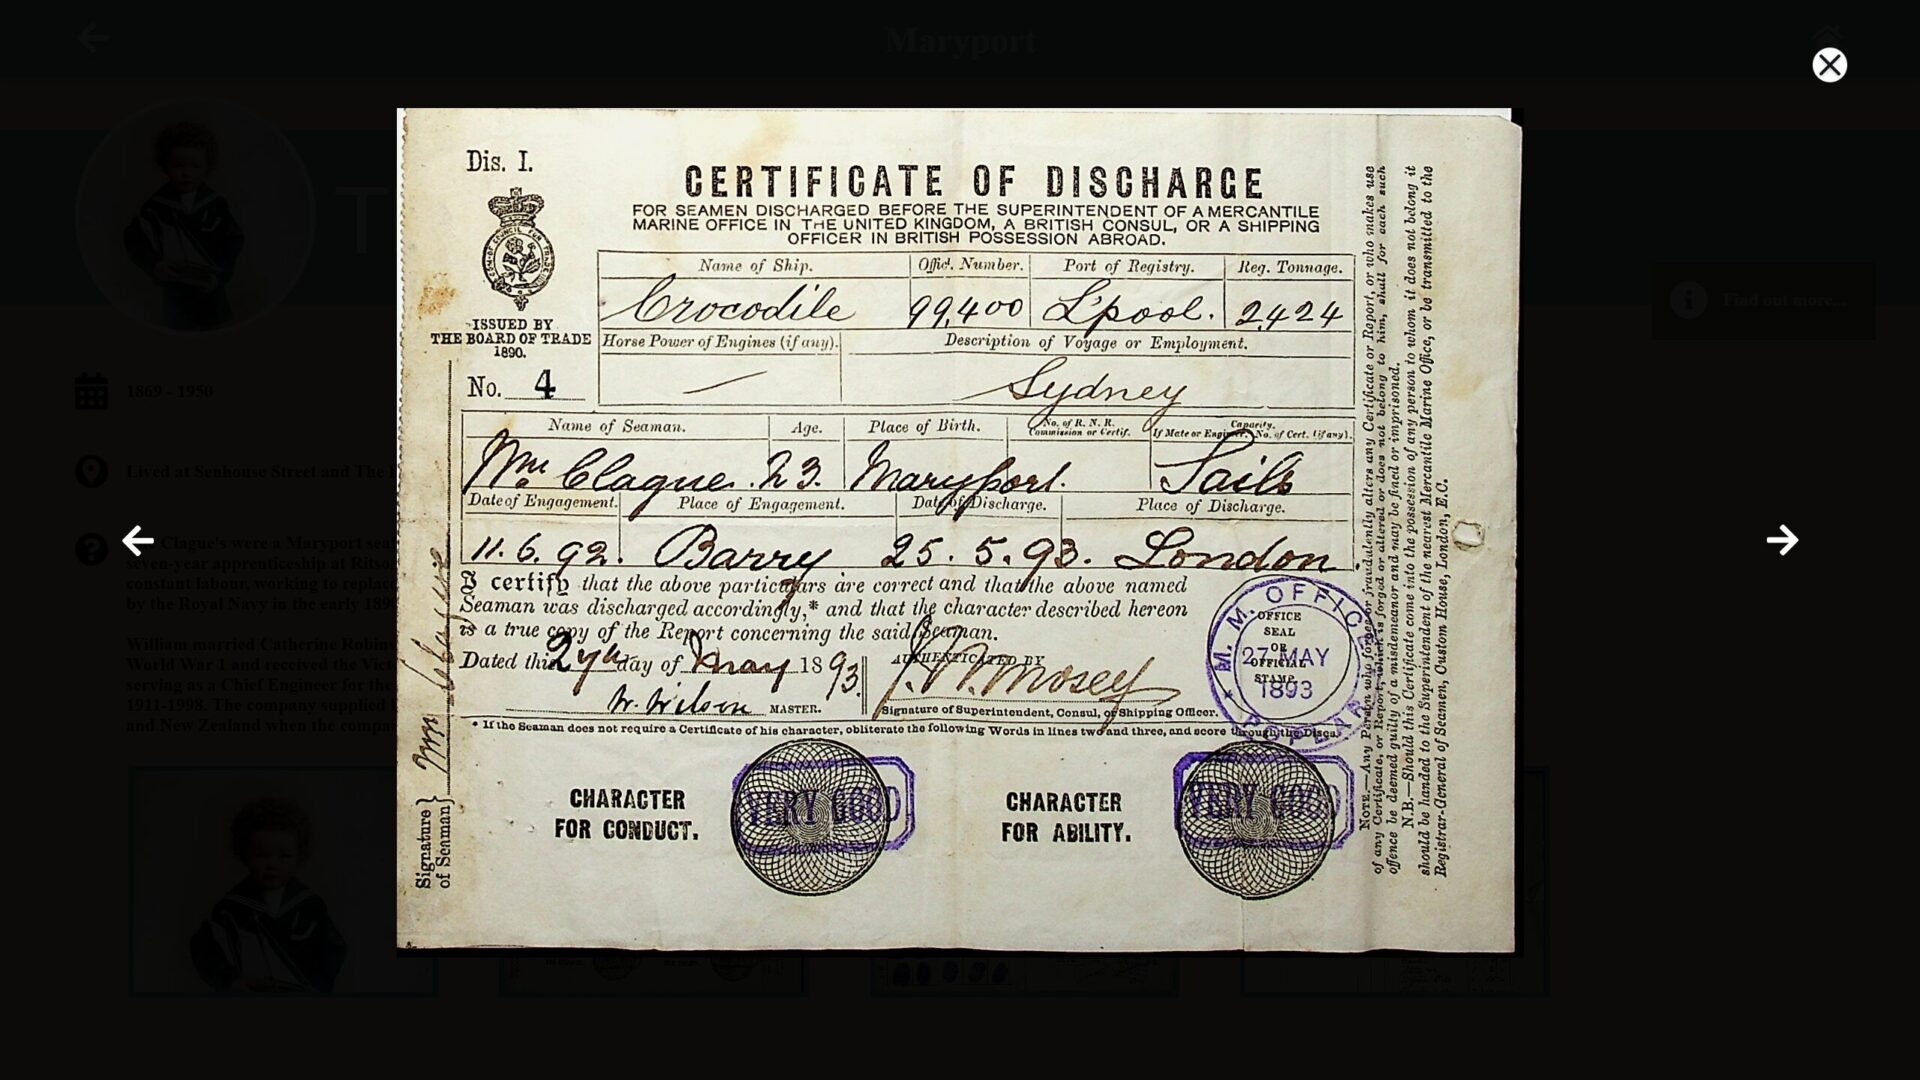 Maryport
Dis. I.
CERTIFICATE OF DISCHARGE
FOR SEAMEN DISCHARGED BEFORE THE SUPERINTENDENT OF A MERCANTILE
MARINE OFFICE IN THE UNITED KINGDOM, A BRITISH CONSUL, OR A SHIPPING
OFFICER IN BRITISH POSSESSION ABROAD.
ISSUED BY
THE BOARD OF TRADE
1890.
No. 4
Name of Ship. Offici. Number. Port of Registry. Reg. Tonnage.
Crocodile 99,400 L'pool. 2,424
Horse Power of Engines (if any). Description of Voyage or Employment.
— Sydney
Name of Seaman. Age. Place of Birth. No. of R. N. R. Commission or Certif. Capacity. If Mate or Engineer, No. of Cert. (if any).
Wm Clague. 23. Maryport. Sails
Date of Engagement. Place of Engagement. Date of Discharge. Place of Discharge.
11. 6. 92. Barry 25. 5. 93. London.
I certify that the above particulars are correct and that the above named
Seaman was discharged accordingly,* and that the character described hereon
is a true copy of the Report concerning the said Seaman.
Dated this 27th day of May 1893.
AUTHENTICATED BY
W. Wilson MASTER.
Signature of Superintendent, Consul, or Shipping Officer.
M. M. OFFICE
OFFICE
SEAL
OR
OFFICIAL
STAMP.
27 MAY
1893
POPLAR
* If the Seaman does not require a Certificate of his character, obliterate the following Words in lines two and three, and score through the Discs.
CHARACTER
FOR CONDUCT.
VERY GOOD
CHARACTER
FOR ABILITY.
VERY GOOD
Signature
of Seaman
Wm Clague
NOTE.—Any Person who forges or fraudulently alters any Certificate or Report, or who makes use
of any Certificate, or Report, which is forged or altered or does not belong to him, shall for each such
offence be deemed guilty of a misdemeanor and may be fined or imprisoned.
N.B.—Should this Certificate come into the possession of any person to whom it does not belong it
should be handed to the Superintendent of the nearest Mercantile Marine Office, or be transmitted to the
Registrar-General of Seamen, Custom House, London, E.C.
Find out more...
1869 - 1950
Lived at Senhouse Street and The
Clague's were a Maryport
seven-year apprenticeship at
constant labour, working to replace
by the Royal Navy in the early
William married Catherine
World War 1 and received the
serving as a Chief Engineer for the
1911-1998. The company supplied
and New Zealand when the